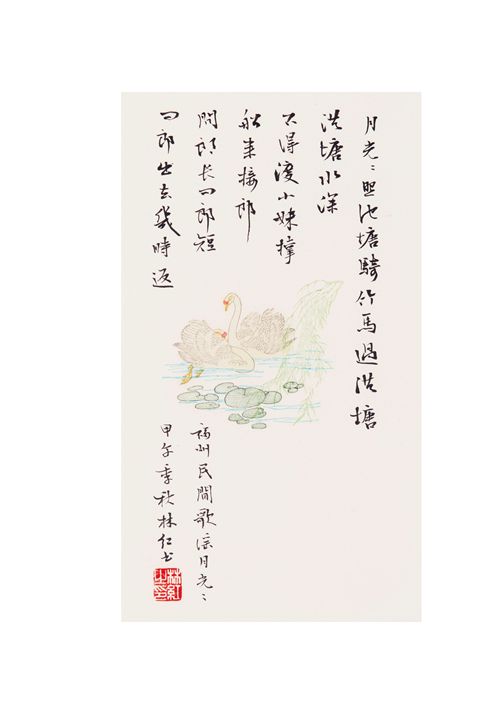 月光〻照池塘騎竹馬過洪塘
洪塘水深
不得渡小妹撑
船来接郎
問郎长问郎短
问郎出去幾時返
福州民間歌谣月光〻
甲午季秋林书
林紅之印